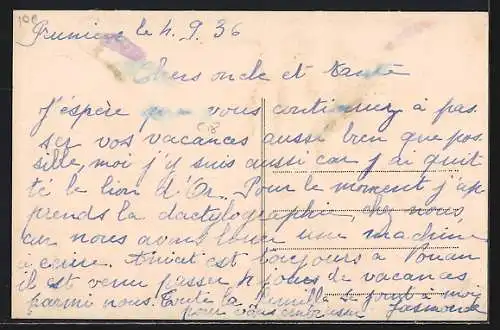 10€
le 4.9.36
Chers oncle et tante
J'espère que vous continuez à pas
ser vos vacances aussi bien que pos
sible, moi j'y suis aussi car j'ai quit
té le lion d'Or. Pour le moment j'ap
prends la dactylographie, chez nous,
car nous avons loué une machine
à écrire. est toujours à Douan
il est venu passer 4 jours de vacances
parmi nous. Toute la famille se joint à moi
pour vous embrasser